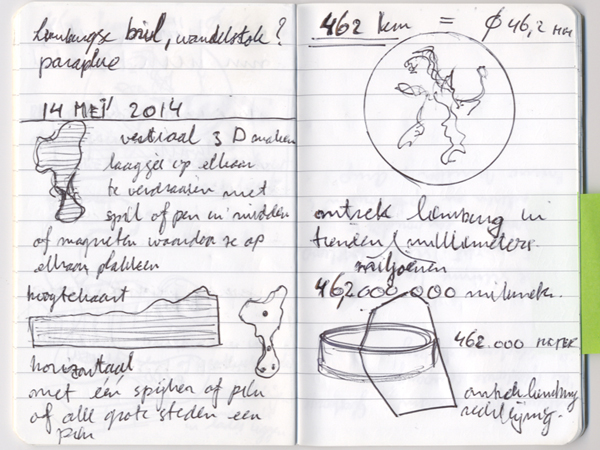 Limburgse bril, wandelstok?
paraplue
14 MEI 2014
verticaal 3 D maken
laagjes op elkaar
te verdraaien met
spil of pen in midden
of magneten waardoor ze op
elkaar plakken
hoogtekaart
horizontaal
met één spijker of pin
of alle grote steden een
pin
462 km = ϕ 46,2 mm
omtrek limburg in
tienden millimeters.
miljoenen
462.000.000 milimeter.
462.000 METER
omtrek limburg